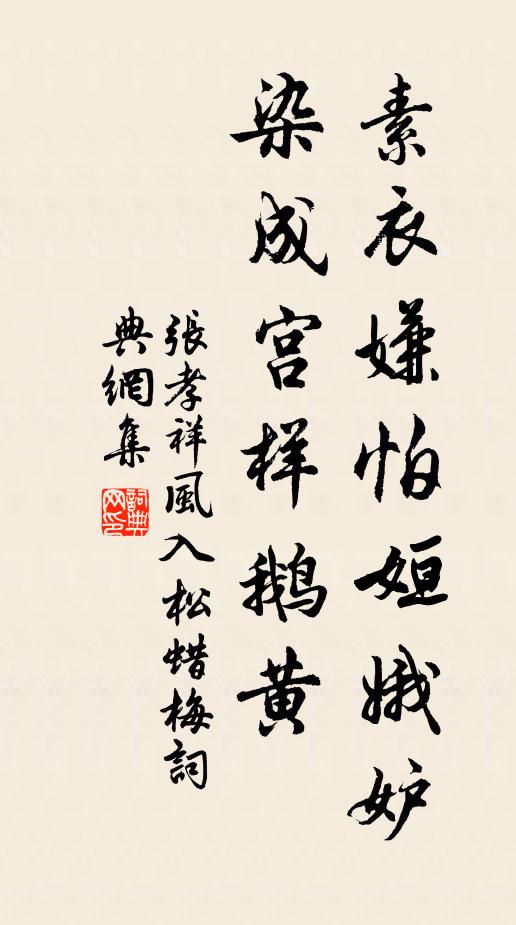 素衣嫌怕姮娥妒
染成宫样鹅黄
張孝祥風入松蜡梅詞
典網集
詞典网印